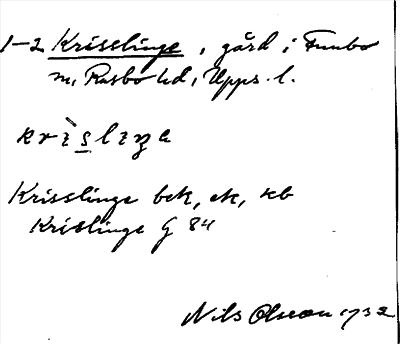 1-2 Krisslinge, gård i Funbo
sn, Rasbo hd, Upps. l.
krìslıŋe
Krisslinge bek, ek, kb
Krislinge G 84
Nils Olsson 1932